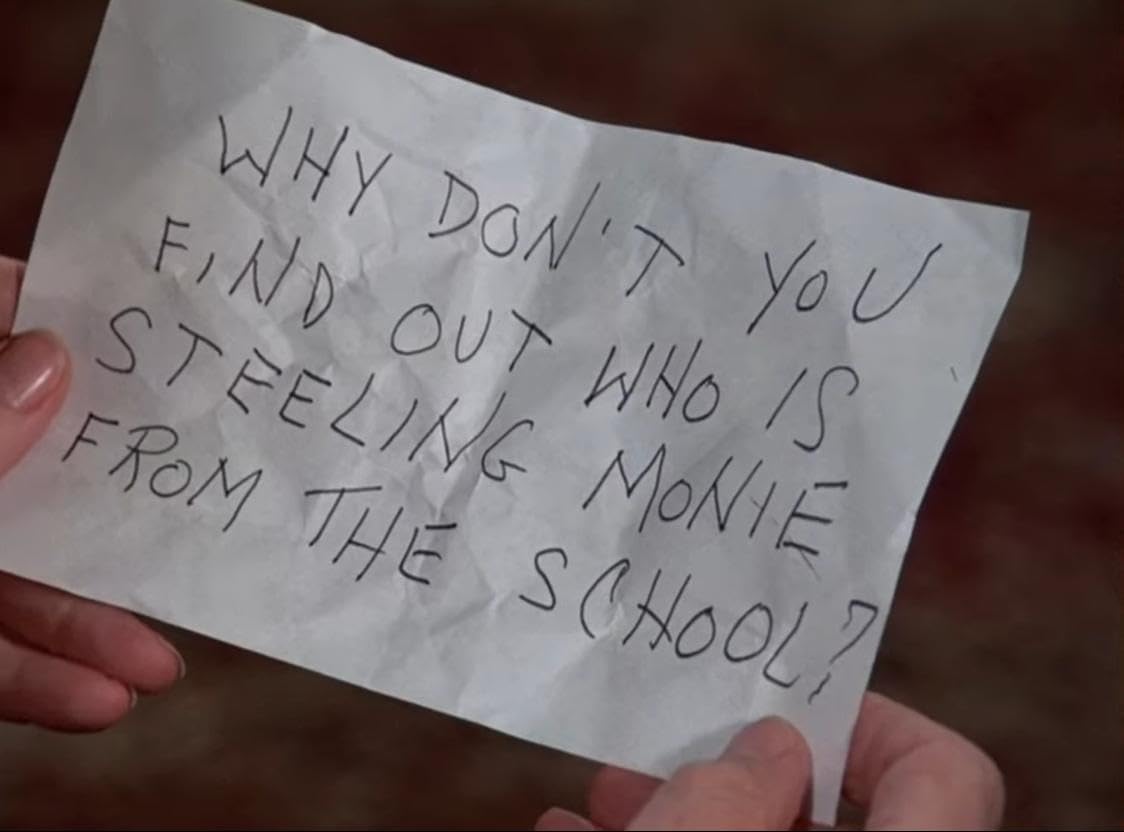 WHY DON'T YOU
FIND OUT WHO IS
STEELING MONIE
FROM THE SCHOOL?